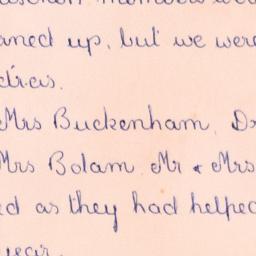 aned up, but we were
Mrs Buckenham, Dr
Mrs Bolam, Mr & Mrs
ed as they had helped
year.